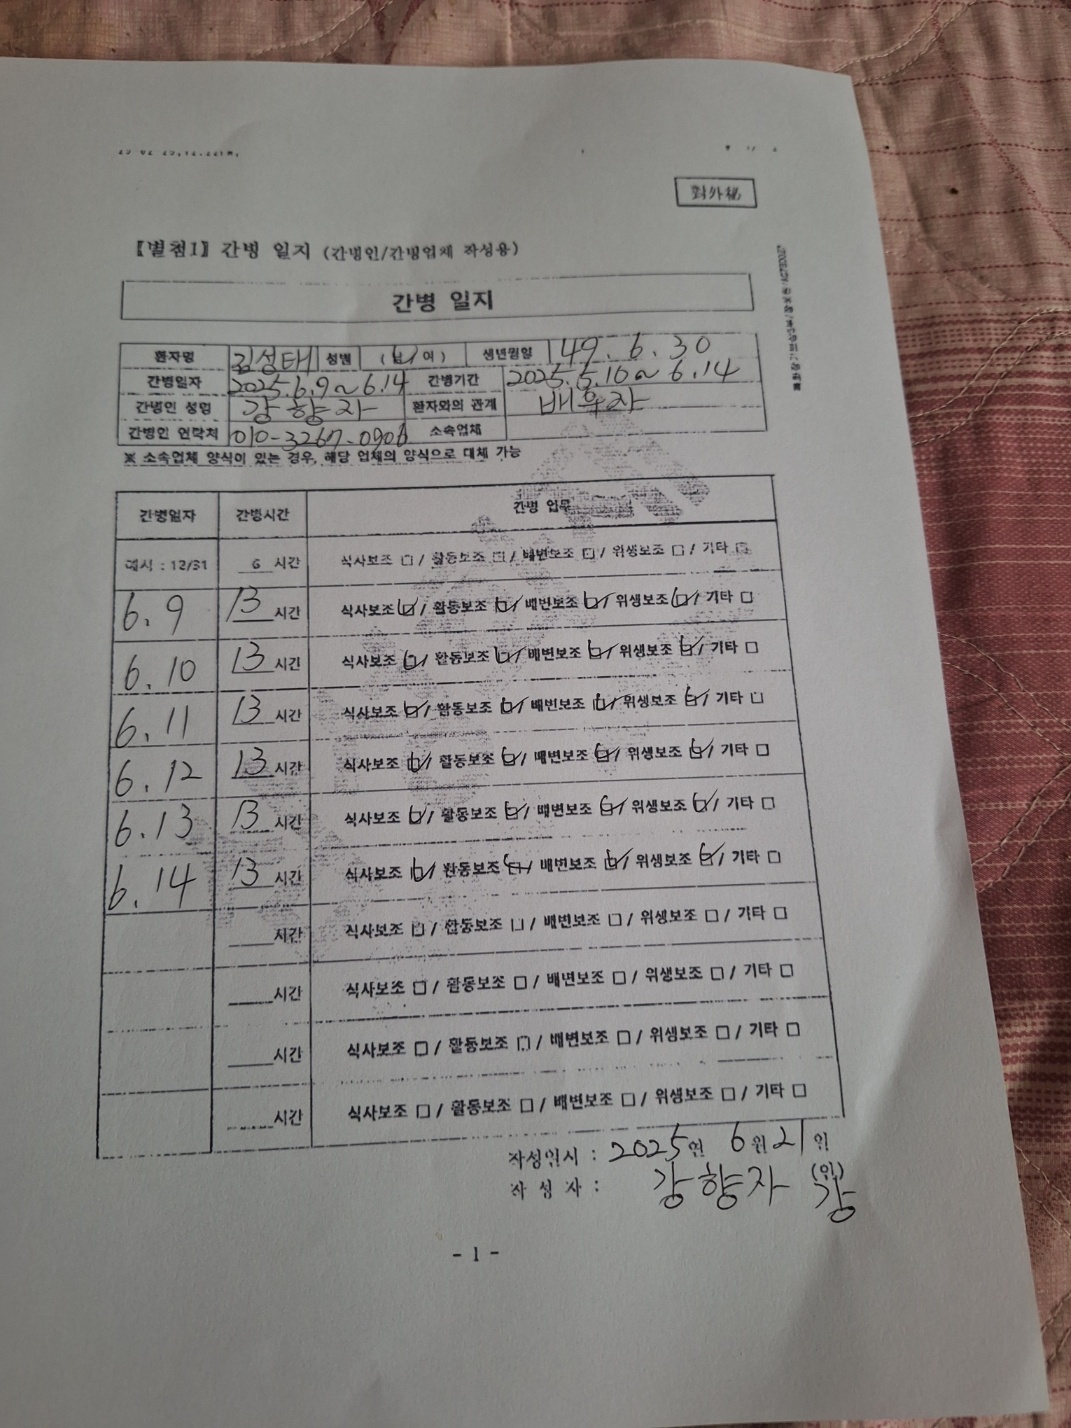 對外秘
【별첨1】 간병 일지 (간병인/간병업체 작성용)
간병 일지
환자명 김성태 성별 (남/여) 생년월일 49. 6. 30
간병일자 2025.6.9~6.14 간병기간 2025.5.10~6.14
간병인 성명 강향자 환자와의 관계 배우자
간병인 연락처 010-3267-0906 소속업체
※ 소속업체 양식이 있는 경우, 해당 업체의 양식으로 대체 가능
간병일자 간병시간 간병 업무
예시 : 12/31 6 시간 식사보조 □ / 활동보조 □ / 배변보조 □ / 위생보조 □ / 기타 □
6.9 13 시간 식사보조 ☑ / 활동보조 ☑ / 배변보조 ☑ / 위생보조 ☑ / 기타 □
6.10 13 시간 식사보조 ☑ / 활동보조 ☑ / 배변보조 ☑ / 위생보조 ☑ / 기타 □
6.11 13 시간 식사보조 ☑ / 활동보조 ☑ / 배변보조 ☑ / 위생보조 ☑ / 기타 □
6.12 13 시간 식사보조 ☑ / 활동보조 ☑ / 배변보조 ☑ / 위생보조 ☑ / 기타 □
6.13 13 시간 식사보조 ☑ / 활동보조 ☑ / 배변보조 ☑ / 위생보조 ☑ / 기타 □
6.14 13 시간 식사보조 ☑ / 활동보조 ☑ / 배변보조 ☑ / 위생보조 ☑ / 기타 □
시간 식사보조 □ / 활동보조 □ / 배변보조 □ / 위생보조 □ / 기타 □
시간 식사보조 □ / 활동보조 □ / 배변보조 □ / 위생보조 □ / 기타 □
시간 식사보조 □ / 활동보조 □ / 배변보조 □ / 위생보조 □ / 기타 □
시간 식사보조 □ / 활동보조 □ / 배변보조 □ / 위생보조 □ / 기타 □
작성일시 : 2025년 6월 21일
작 성 자 : 강향자 (인) 강
- 1 -